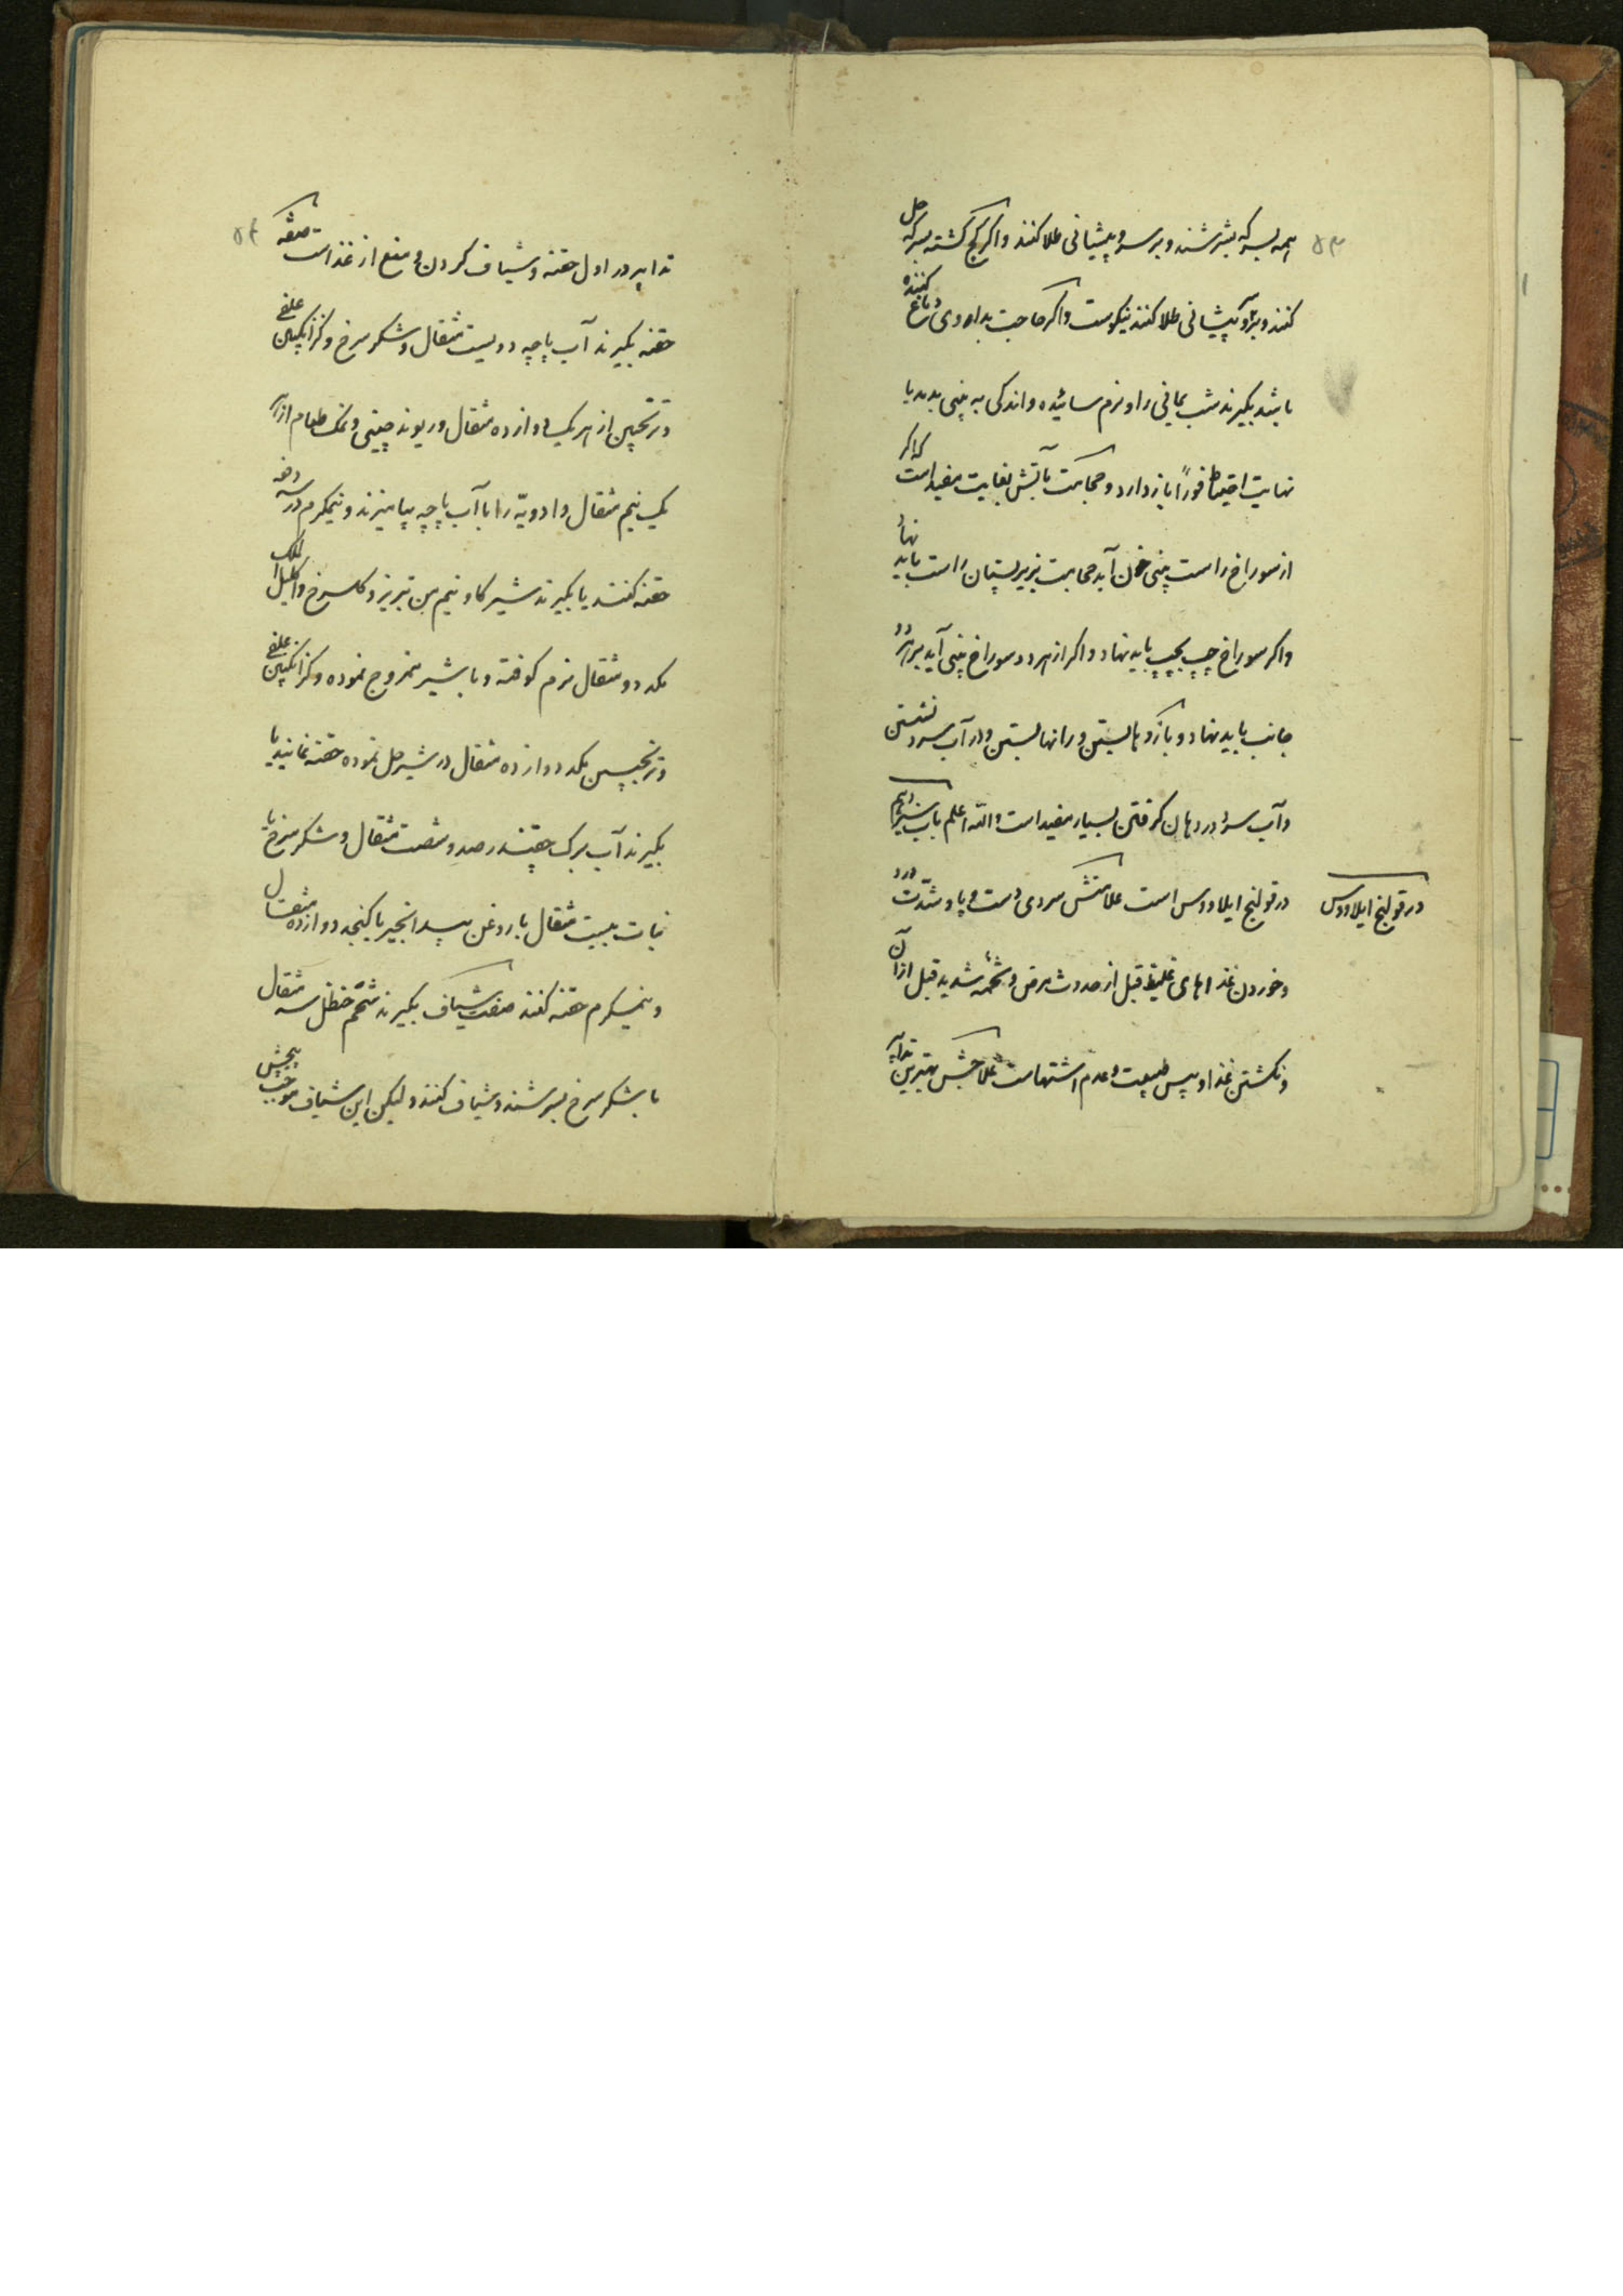 ۵۳
همه بسرکه بسرشند و بر سر و پیشانی طلا کنند و اگر گچ کشته بسرکه حل
کنند و بر سر و پیشانی طلا کنند نیکوست و اگر حاجت بداروی داغ کننده
باشد بگیرند شب یمانی را و نرم سائیده و اندکی به بینی بدمد با
نهایت احتیاط فوراً بازدارد و حجامت بآتش بغایت مفید است که اگر
از سوراخ راست بینی خون آید حجامت بزیر پستان راست باید نهاد
و اگر سوراخ چپ بچپ باید نهاد و اگر از هر دو سوراخ بینی آید بر هر دو
جانب باید نهاد و بازوها بستن و رانها بستن و در آب سرد نشستن
و آب سرد در دهان گرفتن بسیار مفید است والله اعلم باب سیزدهم
در قولنج ایلاووس است علامتش سردی دست و پا و شدّت درد
در قولنج ایلاووس
و خوردن غذاهای غلیظ قبل از حدوث مرض و تخمهٔ شدید قبل از آن
و نگشتن غذا و یبس طبیعت و عدم اشتهاست علاجش بهترین تدابیر
۵۴
تدابیر در اول حقنه و شیاف کردن و منع از غذا است صفة
حقنه بگیرند آب پاچه دویست مثقال و شکر سرخ و گزانگبین علفی
و ترنجبین از هر یک دوازده مثقال و ریوند چینی و نمک طعام از هر
یک نیم مثقال و ادویّه را با آب پاچه بیامیزند و نیمگرم در سه دفعه
حقنه کنند یا بگیرند شیر گاو نیم من تبریز و گلسرخ و اکلیل الملک
یکد دو مثقال نرم کوفته و با شیر ممزوج نموده و گزانگبین علفی
و ترنجبین یکد دوازده مثقال در شیر حل نموده حقنه نمایند یا
بگیرند آب برک چقندر صد و شصت مثقال و شکر سرخ یا
نبات بیست مثقال با روغن بیدانجیر یا کنجد دوازده مثقال
و نیمگرم حقنه کنند صفت شیاف بگیرند شحم حنظل سه مثقال
با شکر سرخ بسرشند و شیاف کنند و لیکن این شیاف موجب پیچش